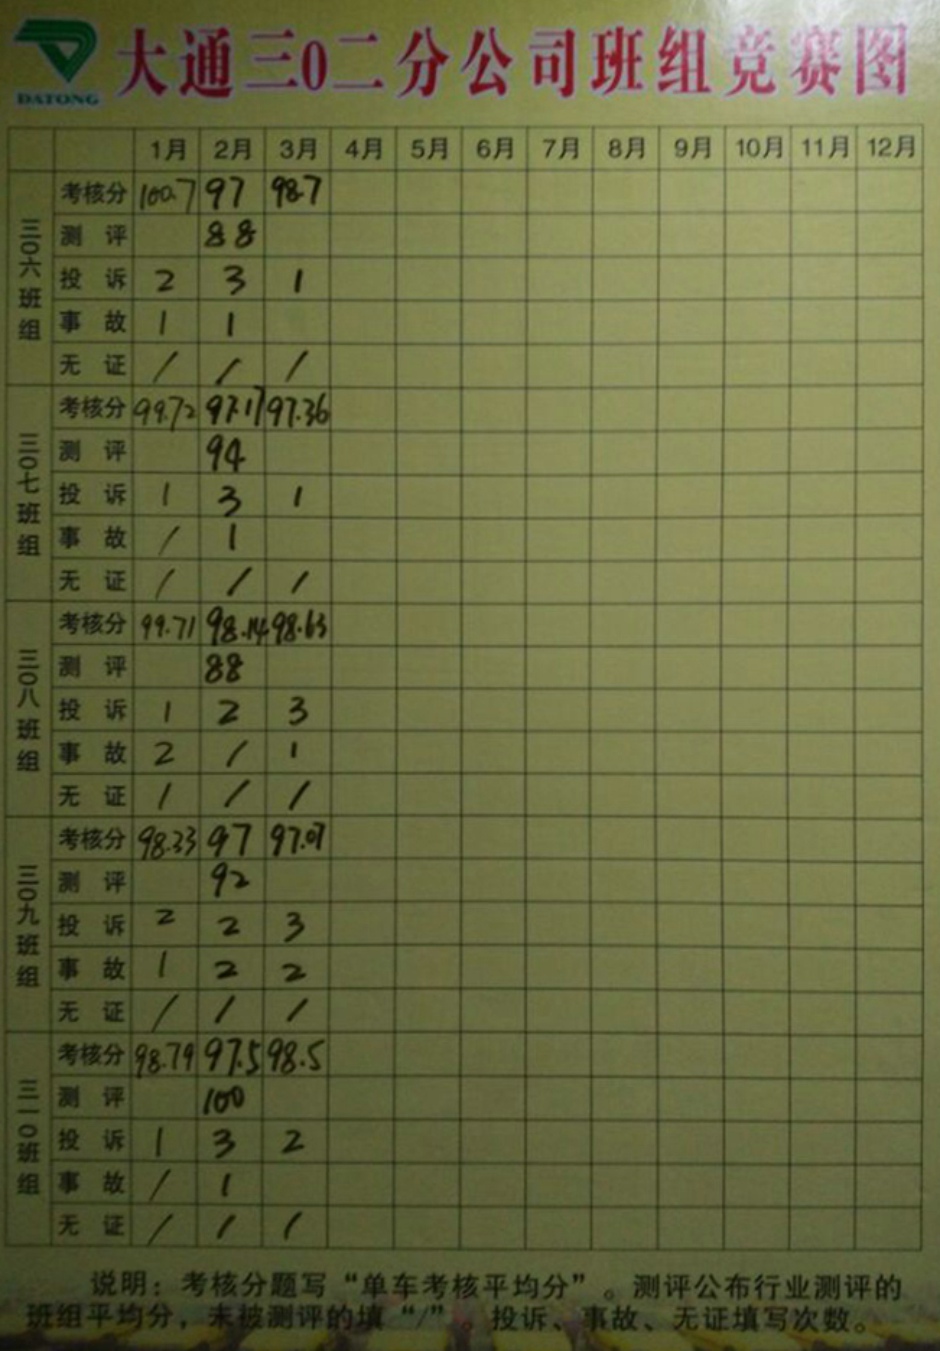 大通三0二分公司班组竞赛图
DATONG
1月 2月 3月 4月 5月 6月 7月 8月 9月 10月 11月 12月
三0六班组
考核分 100.7 97 98.7
测评 88
投诉 2 3 1
事故 1 1
无证 / / /
三0七班组
考核分 99.72 97.17 97.36
测评 94
投诉 1 3 1
事故 / 1
无证 / / /
三0八班组
考核分 99.71 98.14 98.63
测评 88
投诉 1 2 3
事故 2 / 1
无证 / / /
三0九班组
考核分 98.33 97 97.07
测评 92
投诉 2 2 3
事故 1 2 2
无证 / / /
三一0班组
考核分 98.79 97.5 98.5
测评 100
投诉 1 3 2
事故 / 1
无证 / / /
说明：考核分题写“单车考核平均分”。测评公布行业测评的
班组平均分，未被测评的填“/”。投诉、事故、无证填写次数。